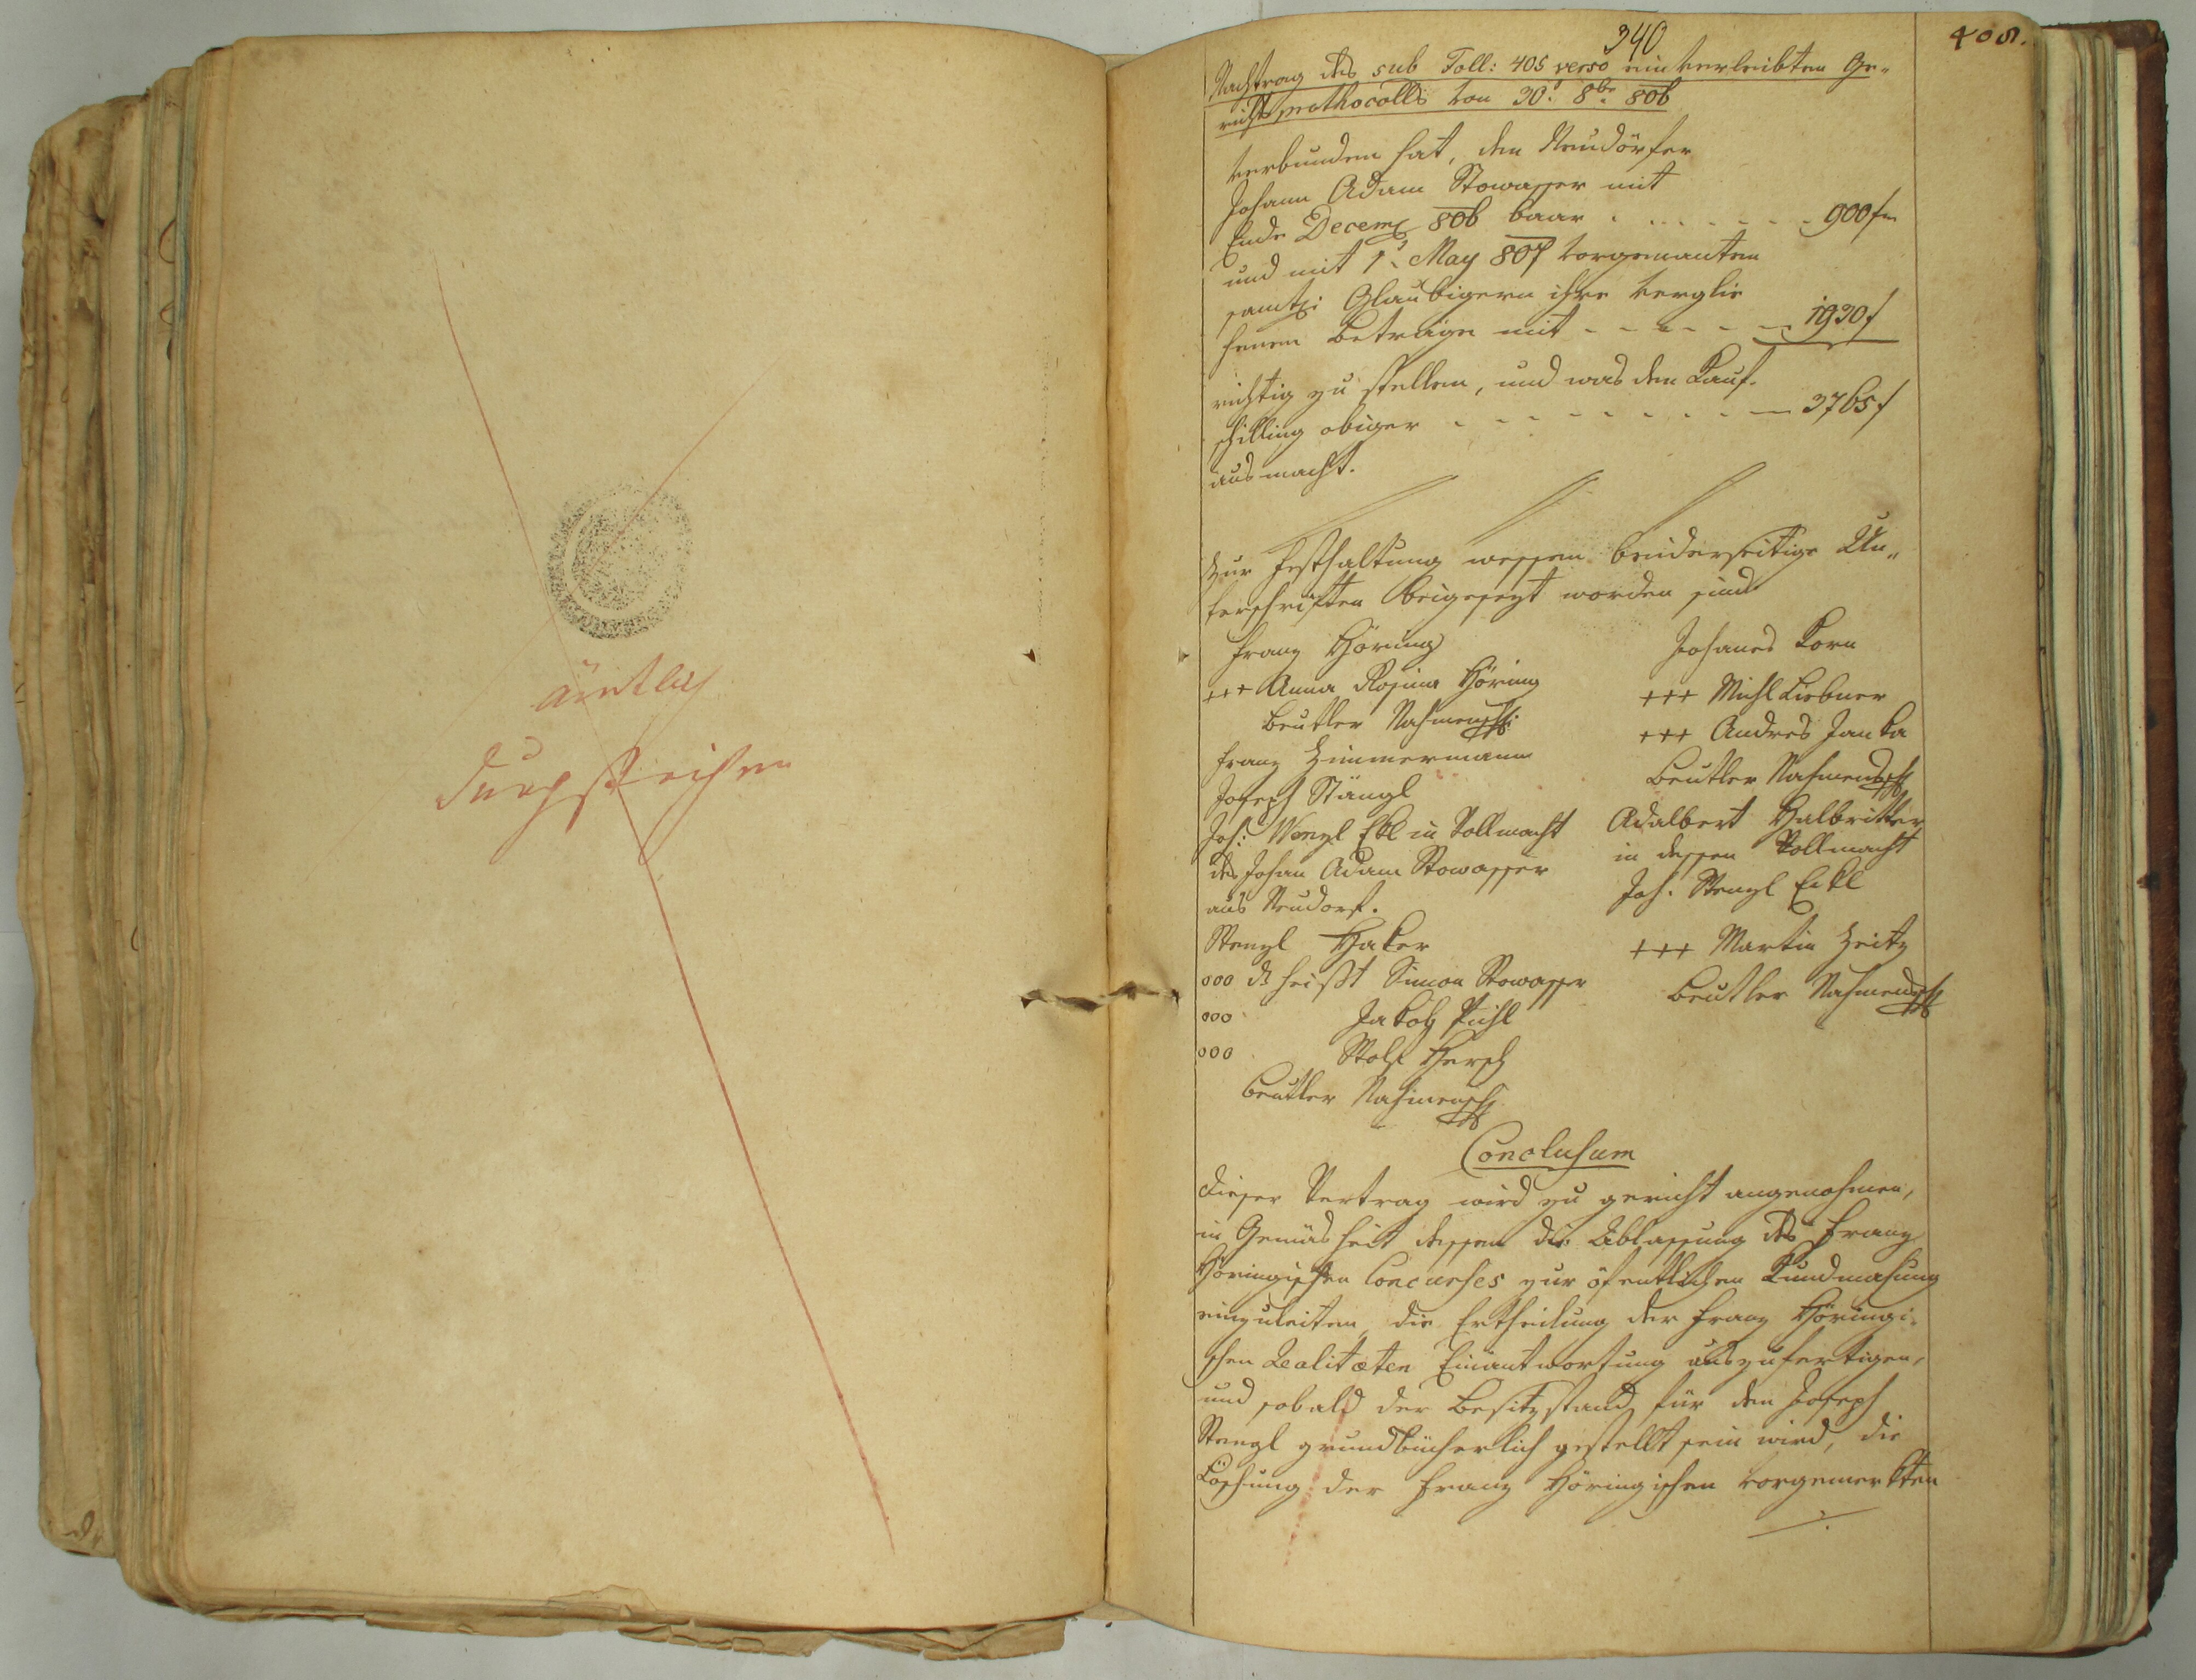 ämtlich
durchstrichen
340
408.
Nachtrag des sub Foll: 405 verso einverleibten Ge-
richtsprothocolls von 30. 8br 806
verbunden hat, dem Neudörfer
Johann Adam Stowasser mit
Ende Decemb 806 baar . . . . . . . 900 f
und mit 1. May 807 vorgenanten
samtl: Glaubigern ihre verglie
henen Beträge mit - - - - - - 1930 f
richtig zu stellen, und was den Kauf-
schilling obiger - - - - - - - - 3765 f
ausmacht.
Zur Festhaltung wessen beiderseitige Un-
terschriften beigesezt worden sind
Franz Höring
+++ Anna Rosina Höring
Beutler Nahmensch:
Franz Zimmermann
Joseph Stängl
Joh: Wenzl Ekl in Vollmacht
des Johan Adam Stowasser
aus Neudorf.
Wenzl Haker
ooo d heißt Simon Stowasser
ooo Jakob Pichl
ooo Wolf Hersch
Beutler Nahmensch
Johanes Korn
+++ Michl Liebner
+++ Andres Janka
Beutler Nahmensch
Adalbert Halbritter
in dessen Vollmacht
Joh. Wenzl Eckl
+++ Martin Zeitz
Beutler Nahmensch
Conclusum
Dieser Vertrag wird zu gericht angenohmen,
in Gemäsheit dessen die Ablassung des Franz
Höringischen Concurses zur öfentlichen Kundmachung
einzuleiten, die Ertheilung der Franz Höringi-
schen Realitæten Einantwortung auszufertigen,
und sobald der Besitzstand für den Joseph
Stengl grundbücherlich gestellt sein wird, die
Löschung der Franz Höringischen vorgemerkten
./.